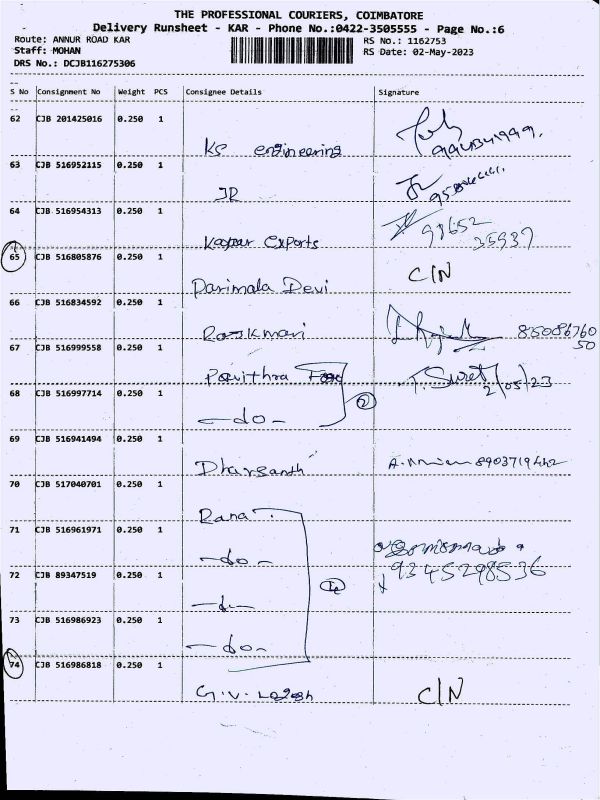 THE PROFESSIONAL COURIERS, COIMBATORE
Delivery Runsheet - KAR - Phone No.:0422-3505555 - Page No.:6
Route: ANNUR ROAD KAR
RS No.: 1162753
Staff: MOHAN
RS Date: 02-May-2023
DRS No.: DCJB116275306
S No Consignment No Weight PCS Consignee Details Signature
62 CJB 201425016 0.250 1
KS engineering
63 CJB 516952115 0.250 1
JR
64 CJB 516954313 0.250 1
98652
Exports
35937
65 CJB 516805876 0.250 1
C/N
Parimala Devi
66 CJB 516834592 0.250 1
Rajkmari
8508676050
67 CJB 516999558 0.250 1
Pavithra
2/05/23
68 CJB 516997714 0.250 1
2
-do-
69 CJB 516941494 0.250 1
Dharsanth
70 CJB 517040701 0.250 1
Rana
71 CJB 516961971 0.250 1
-do-
9345298536
72 CJB 89347519 0.250 1
-do-
73 CJB 516986923 0.250 1
-do-
74 CJB 516986818 0.250 1
G.V.
C/N